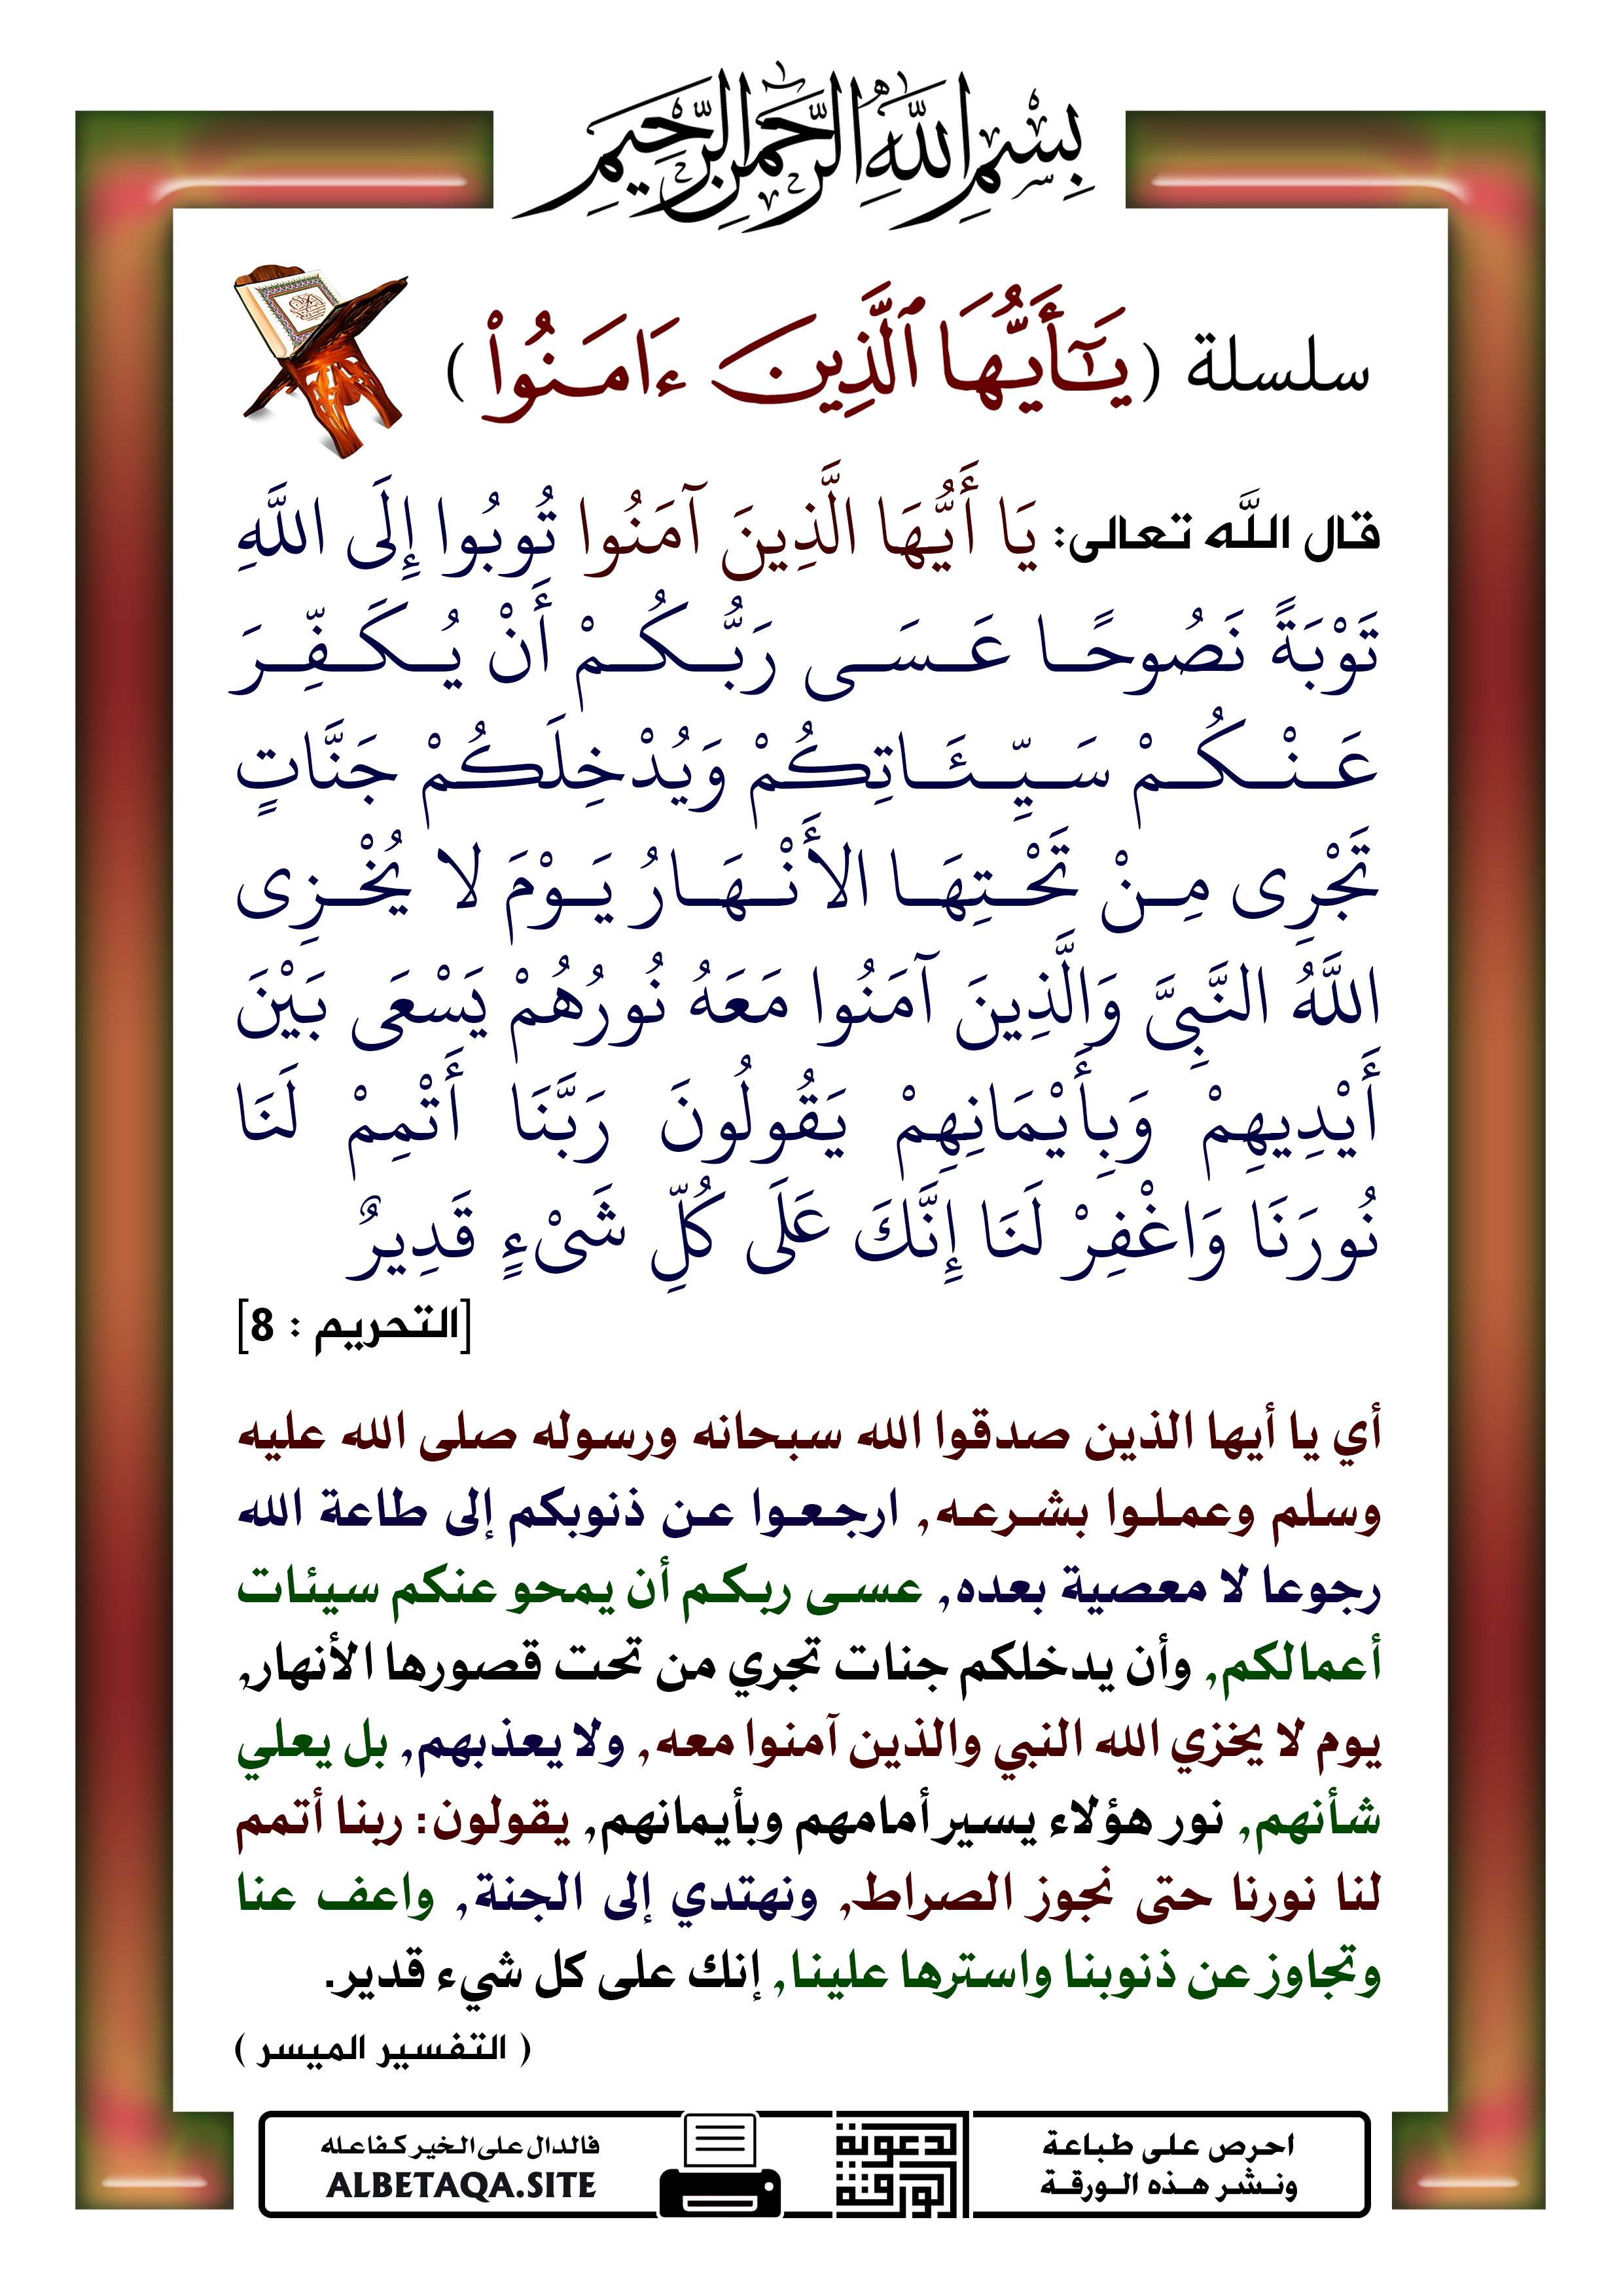 بِسْمِ اللَّهِ الرَّحْمَٰنِ الرَّحِيمِ
سلسلة (يَٰٓأَيُّهَا ٱلَّذِينَ ءَامَنُوا۟)
قال اللَّه تعالى: يَا أَيُّهَا الَّذِينَ آمَنُوا تُوبُوا إِلَى اللَّهِ
تَوْبَةً نَصُوحًا عَسَى رَبُّكُمْ أَنْ يُكَفِّرَ
عَنْكُمْ سَيِّئَاتِكُمْ وَيُدْخِلَكُمْ جَنَّاتٍ
تَجْرِى مِنْ تَحْتِهَا الأَنْهَارُ يَوْمَ لا يُخْزِى
اللَّهُ النَّبِىَّ وَالَّذِينَ آمَنُوا مَعَهُ نُورُهُمْ يَسْعَى بَيْنَ
أَيْدِيهِمْ وَبِأَيْمَانِهِمْ يَقُولُونَ رَبَّنَا أَتْمِمْ لَنَا
نُورَنَا وَاغْفِرْ لَنَا إِنَّكَ عَلَى كُلِّ شَىْءٍ قَدِيرٌ
[التحريم : 8]
أي يا أيها الذين صدقوا الله سبحانه ورسوله صلى الله عليه
وسلم وعملوا بشرعه, ارجعوا عن ذنوبكم إلى طاعة الله
رجوعا لا معصية بعده, عسى ربكم أن يمحو عنكم سيئات
أعمالكم, وأن يدخلكم جنات تجري من تحت قصورها الأنهار,
يوم لا يخزي الله النبي والذين آمنوا معه, ولا يعذبهم, بل يعلي
شأنهم, نور هؤلاء يسير أمامهم وبأيمانهم, يقولون: ربنا أتمم
لنا نورنا حتى نجوز الصراط, ونهتدي إلى الجنة, واعف عنا
وتجاوز عن ذنوبنا واسترها علينا, إنك على كل شيء قدير.
( التفسير الميسر )
احرص على طباعة
ونشر هذه الورقة
فالدال على الخير كفاعله
ALBETAQA.SITE